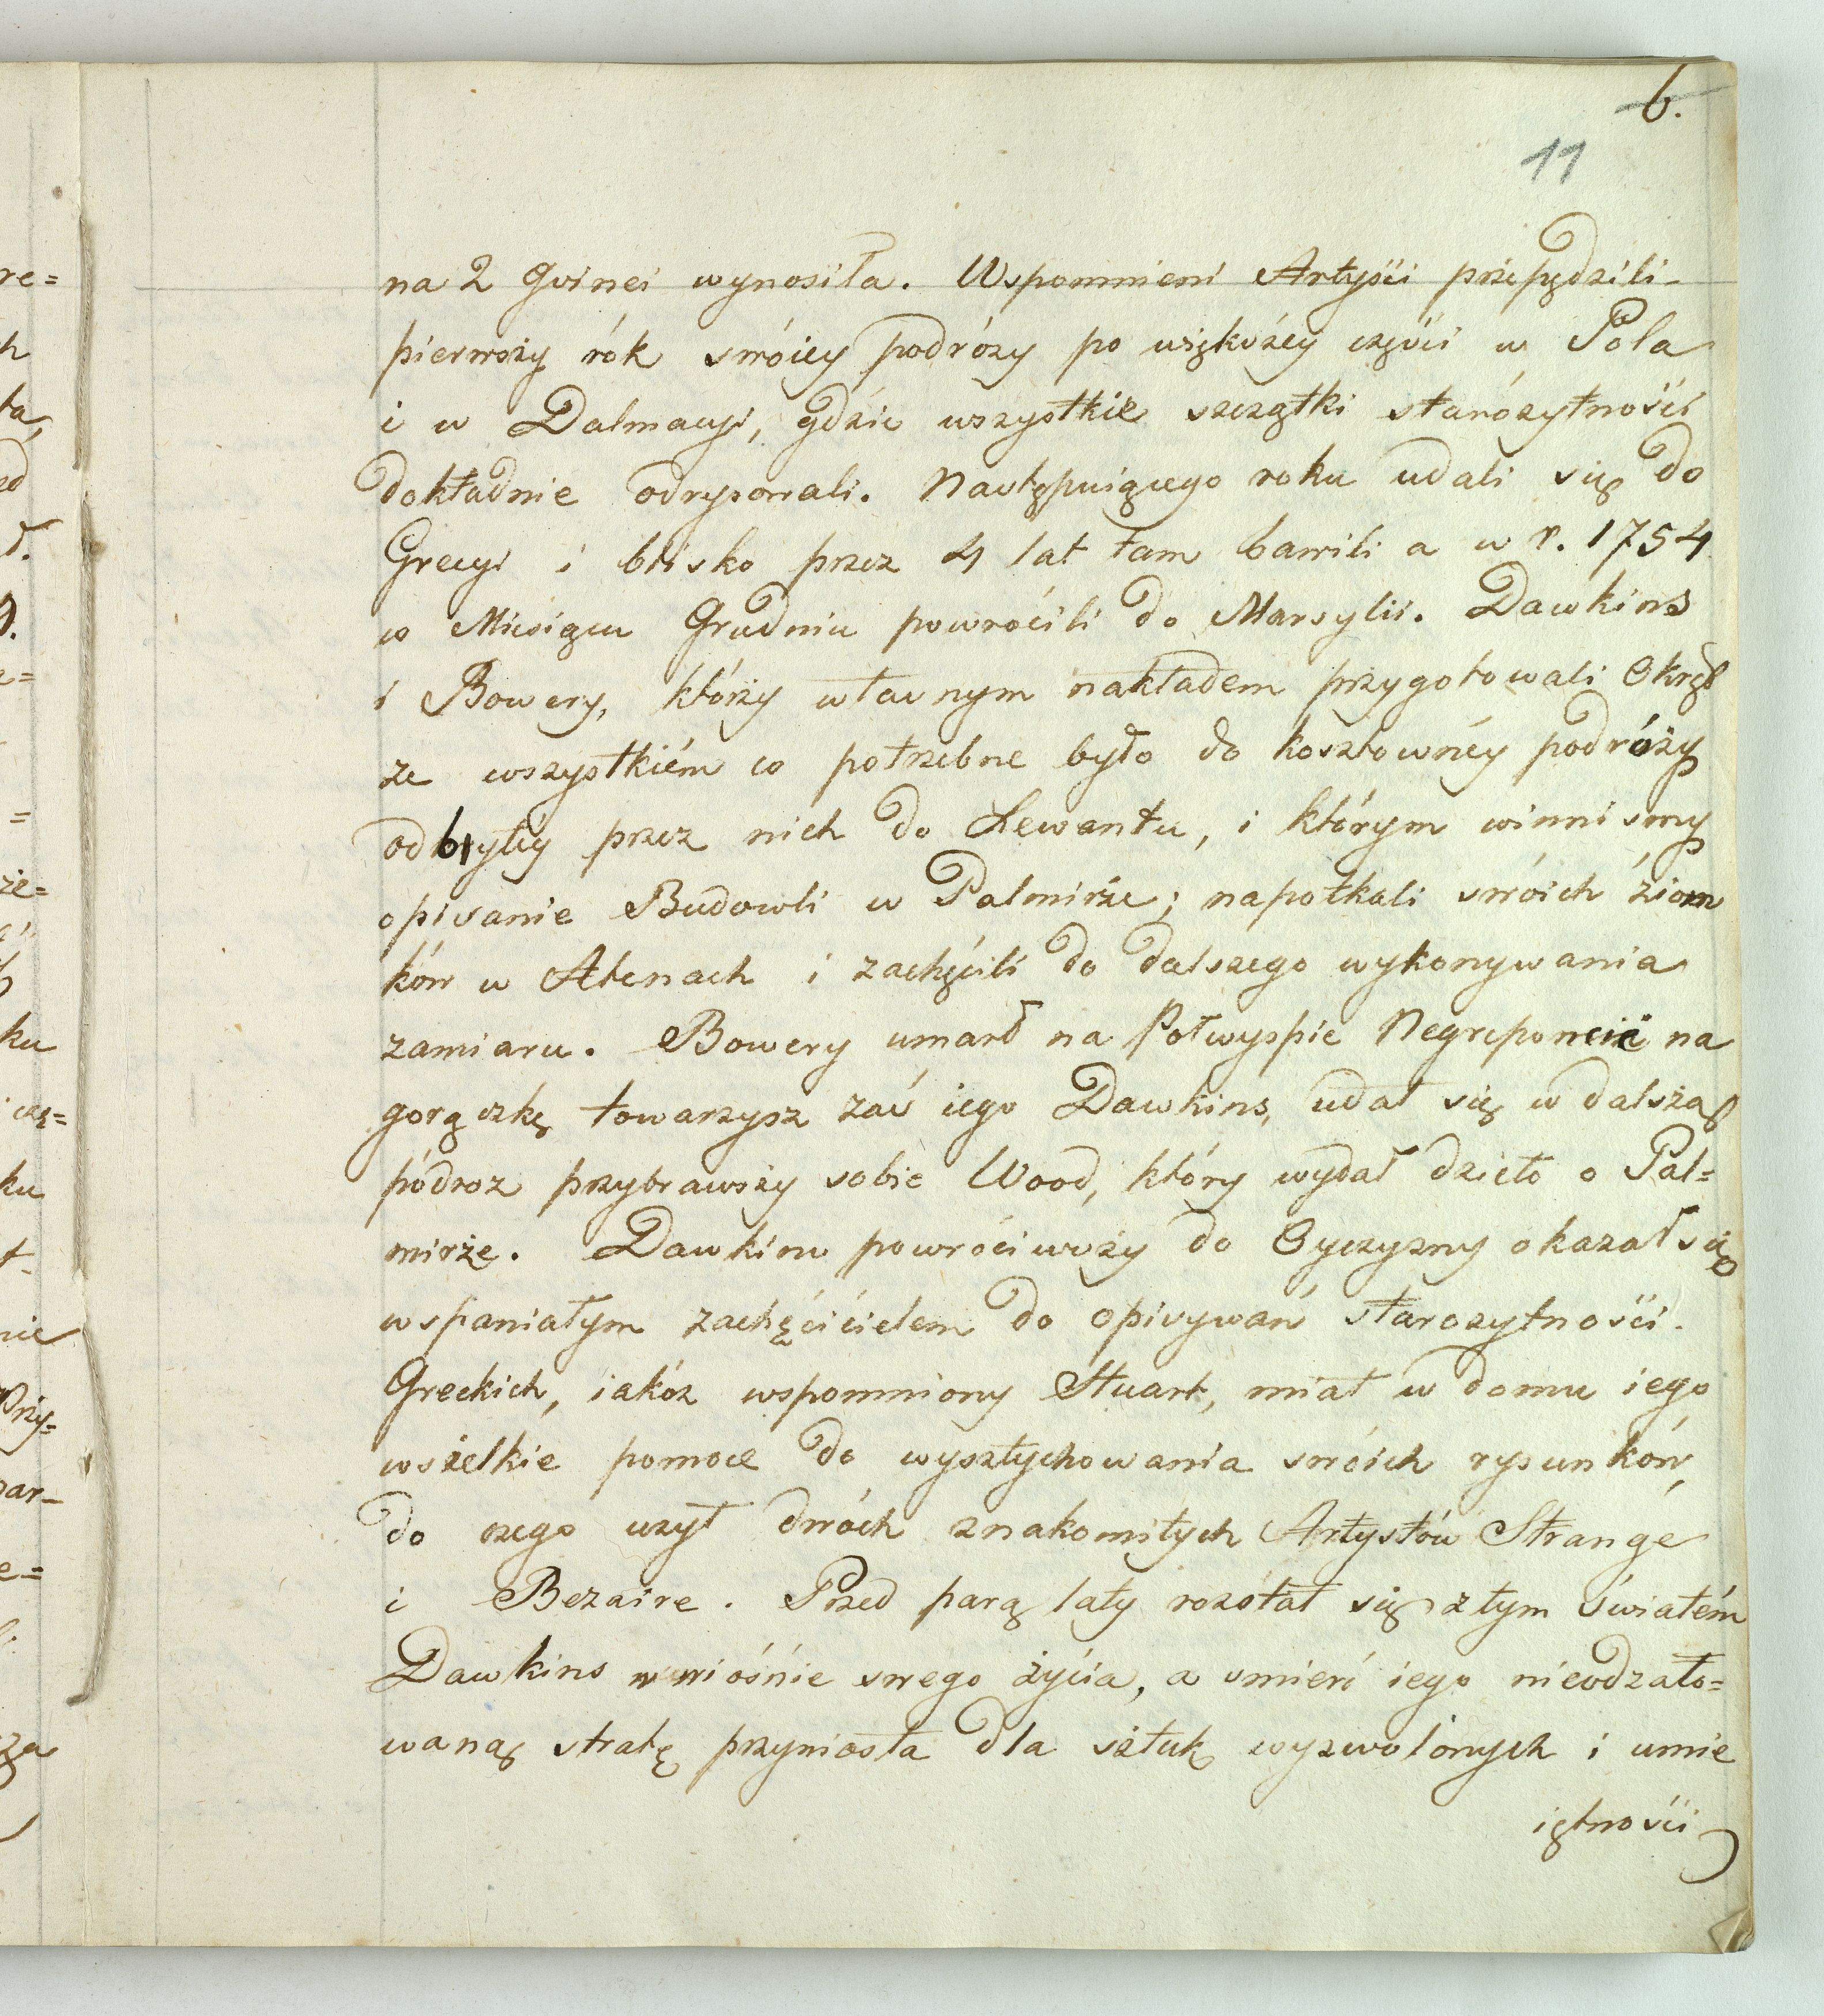 6.
11
na 2 Gvinei wynosiła. Wspomnieni Artyści przepędzili
pierwszy rók swóiey podrózy po większéy części w Póla
i w Dalmacyi, gdzie wszystkie szczątki starózytności
dokładnie odrysowali. Następuiącego roku udali się do
Grecyi i blisko przez 4 lat tam bawili a w r. 1754
w Miesiącu Grudniu powrócili do Marsylii. Dawkins
i Bowery, którzy własnym nakładem przygotowali Okręt
ze wszystkiém co potrzebne było do kosztownéy podróży
odbytéy przez nich do Lewantu, i którym winni smy
opisanie Budowli w Palmirze; napotkali swóich ziom
ków w Atenach i zachęcili do dalszego wykonywania
zamiaru. Bowery umarł na Połwyspie Negreponcie na
gorączkę towarzysz zaś iego Dawkins, udał się w dalszą
pódroz przybrawszy sobie Wood, który wydał dzieło o Pal=
mirze. Dawkins powróciwszy do Oyczyzny okazał się
wspaniałym zachęcicielem do opisywań starozytności
Greckich, iakóz wspomniony Stuart, miał w domu iego
wszelkie pomoce do wysztychowania swóich rysunków,
do czego uzył dwóch znakomitych Artystów Strange
i Bezaire. Przed parą laty rozstał się z tym światém
Dawkins w wiośnie swego życia, a smierć iego nieodzało=
waną stratę przyniosła dla sztuk wyzwolonych i umie
iętności
re=
h
ta,
ed
ł.
=
że=
ku
czę=
ku
nie
Przy=
par-
e=
za